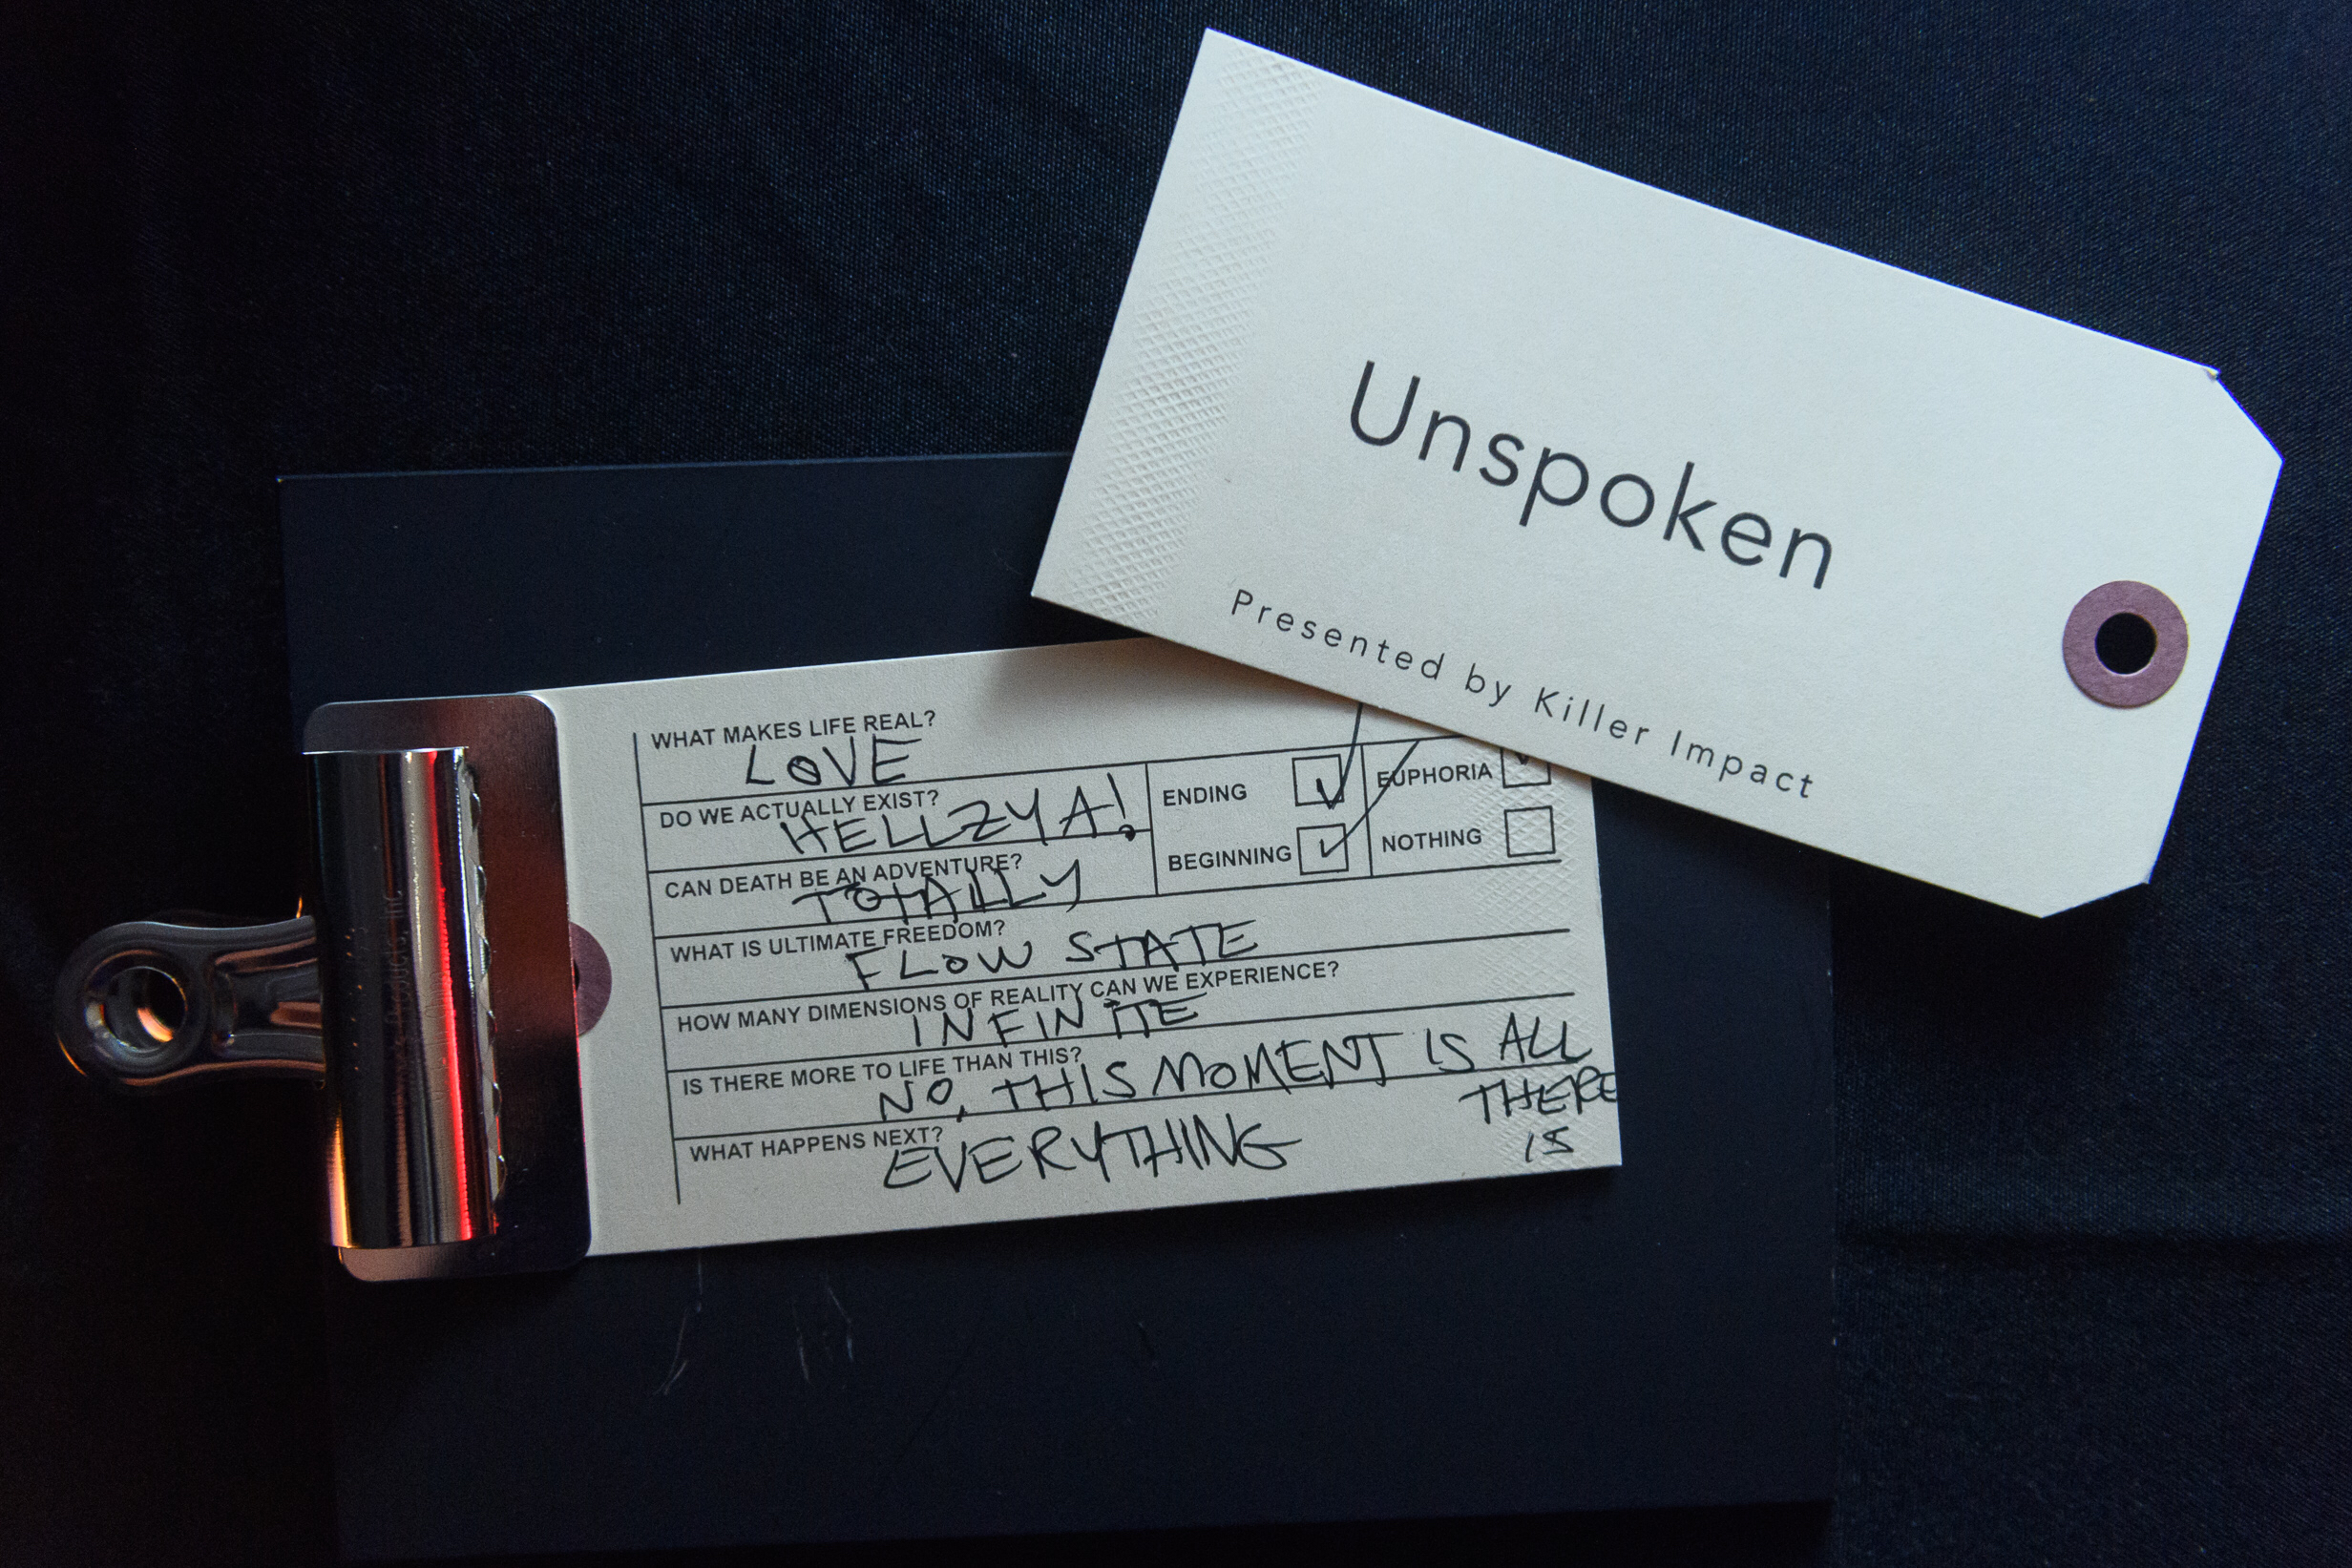 Unspoken
Presented by Killer Impact
WHAT MAKES LIFE REAL?
LOVE
DO WE ACTUALLY EXIST?
HELLZYA!
CAN DEATH BE AN ADVENTURE?
TOTALLY
ENDING
EUPHORIA
BEGINNING
NOTHING
WHAT IS ULTIMATE FREEDOM?
FLOW STATE
HOW MANY DIMENSIONS OF REALITY CAN WE EXPERIENCE?
INFINITE
IS THERE MORE TO LIFE THAN THIS?
NO, THIS MOMENT IS ALL
THERE
IS
WHAT HAPPENS NEXT?
EVERYTHING